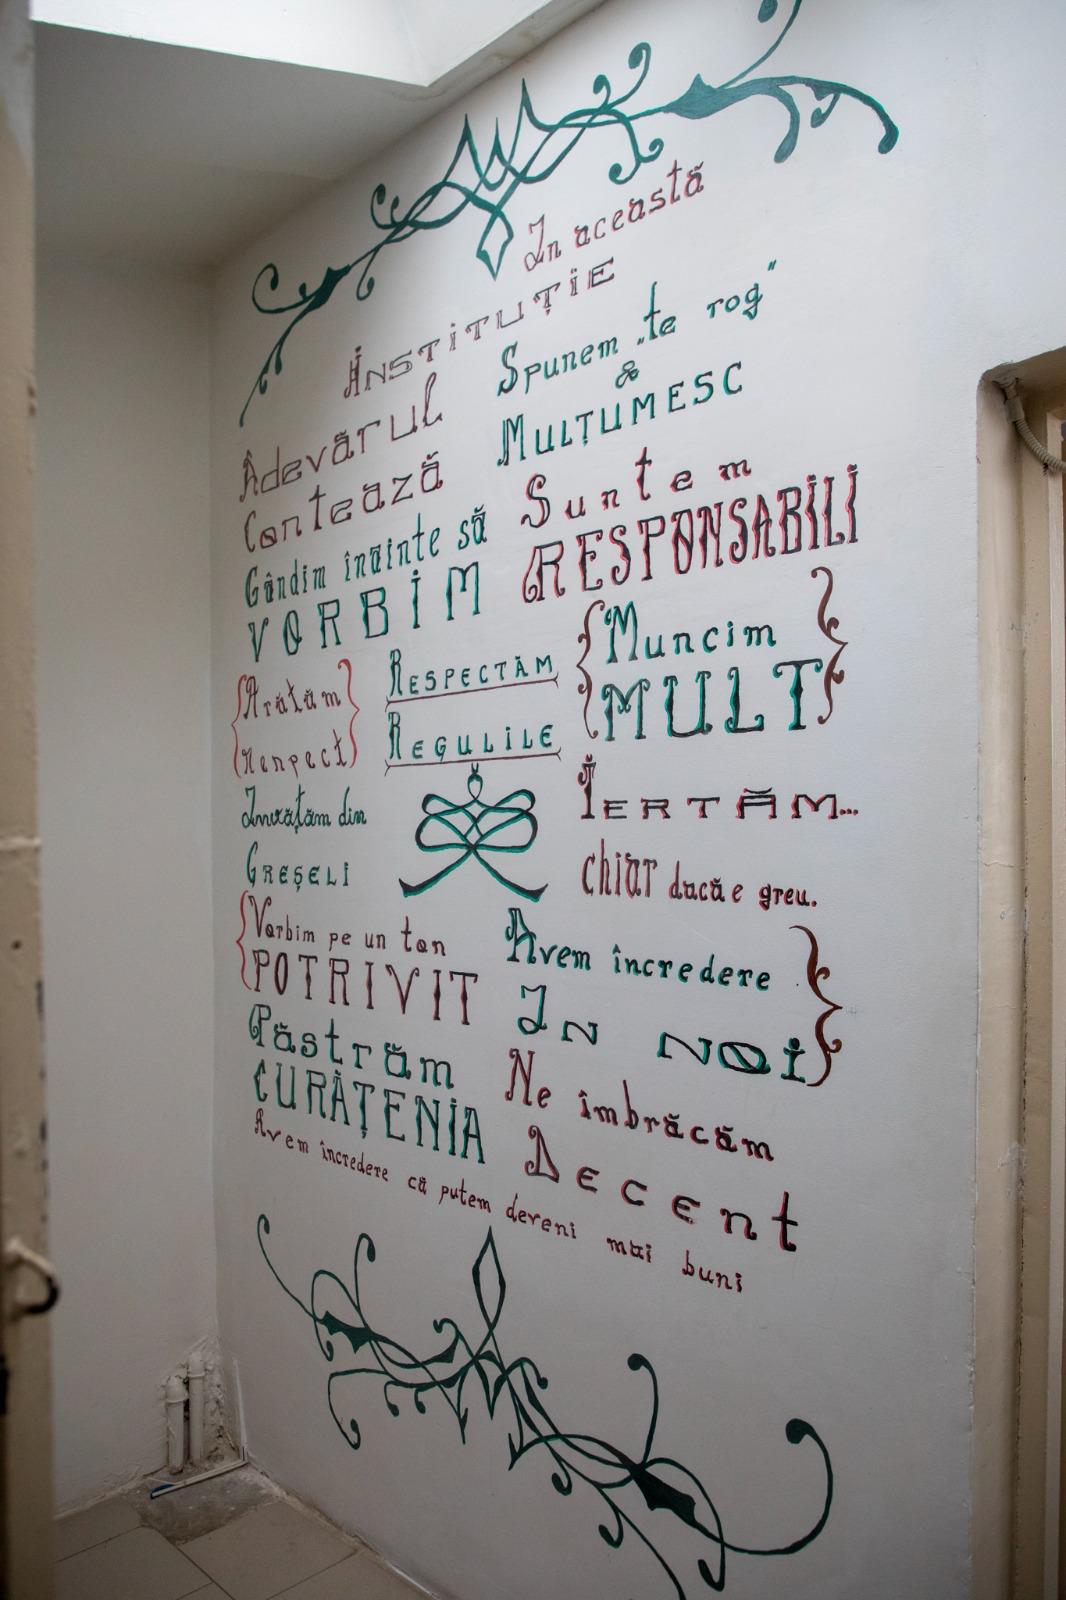 In această
INSTITUȚIE
Adevărul
Contează
Spunem „te rog”
&
MULȚUMESC
Gândim înainte să
VORBIM
Suntem
RESPONSABILI
Arătăm
respect
RESPECTĂM
REGULILE
Muncim
MULT
Învățăm din
GREȘELI
IERTĂM...
chiar dacă e greu.
Vorbim pe un ton
POTRIVIT
Avem încredere
ÎN NOI
Păstrăm
CURĂȚENIA
Ne îmbrăcăm
Decent
Avem încredere că putem deveni mai buni